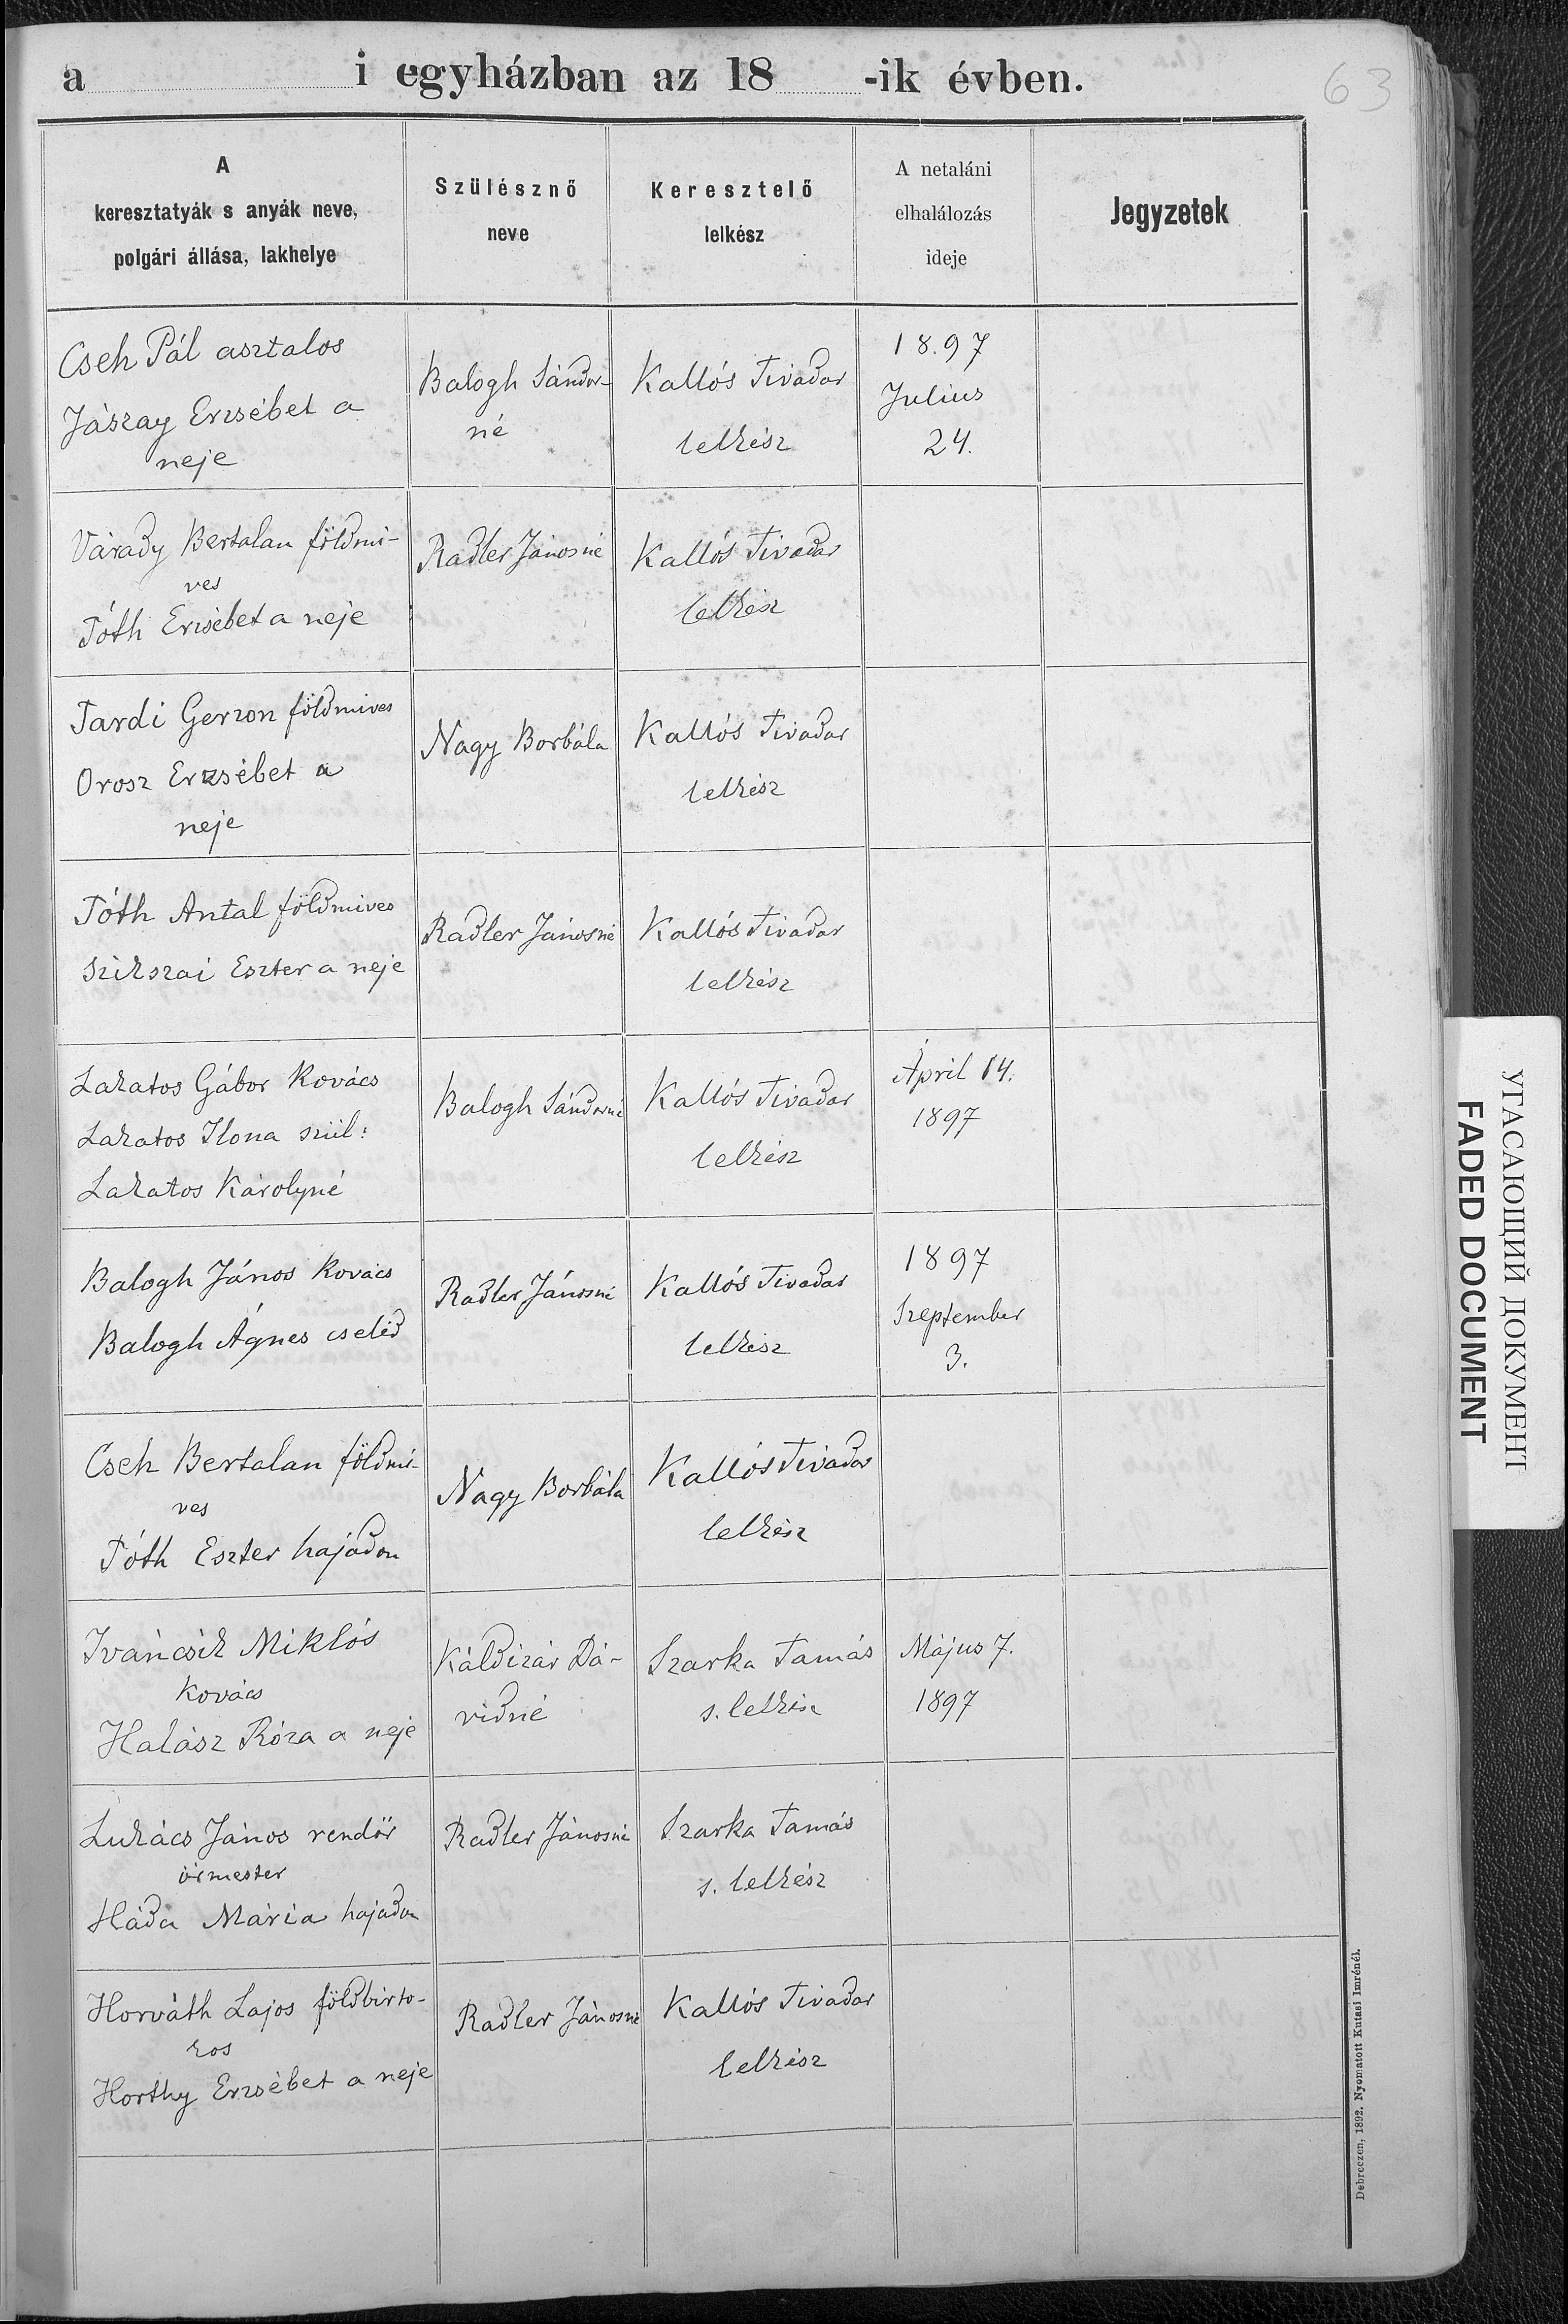 a i egyházban az 18 -ik évben.
63
A
keresztatyák s anyák neve,
polgári állása, lakhelye
Szülésznő
neve
Keresztelő
lelkész
A netaláni
elhalálozás
ideje
Jegyzetek
Cseh Pál asztalos
Jászay Erzsébet a
neje
Balogh Sándor-
né
Kallós Tivadar
lelkész
18.97
Julius
24.
Várady Bertalan földmi-
ves
Tóth Erzsébet a neje
Radler Jánosné
Kallós Tivadar
lelkész
Tardi Gerzon földmives
Orosz Erzsébet a
neje
Nagy Borbála
Kallós Tivadar
lelkész
Tóth Antal földmives
Szikszai Eszter a neje
Radler Jánosné
Kallós Tivadar
lelkész
Lakatos Gábor Kovács
Lakatos Ilona szül:
Lakatos Károlyné
Balogh Sándorné
Kallós Tivadar
lelkész
Ápril 14.
1897
Balogh János Kovács
Balogh Ágnes cseléd
Radler Jánosné
Kallós Tivadar
lelkész
1897
Szeptember
3.
Cseh Bertalan földmi-
ves
Tóth Eszter hajadon
Nagy Borbála
Kallós Tivadar
lelkész
Iváncsik Miklós
Kovács
Halász Róza a neje
Káldizár Dá-
vidné
Szarka Tamás
s. lelkész
Május 7.
1897
Lukács János rendőr
őrmester
Háda Mária hajadon
Radler Jánosné
Szarka Tamás
s. lelkész
Horváth Lajos földbirto-
kos
Horthy Erzsébet a neje
Radler Jánosné
Kallós Tivadar
lelkész
Debreczen, 1892. Nyomatott Kutasi Imrénél.
УГАСАЮЩИЙ ДОКУМЕНТ
FADED DOCUMENT